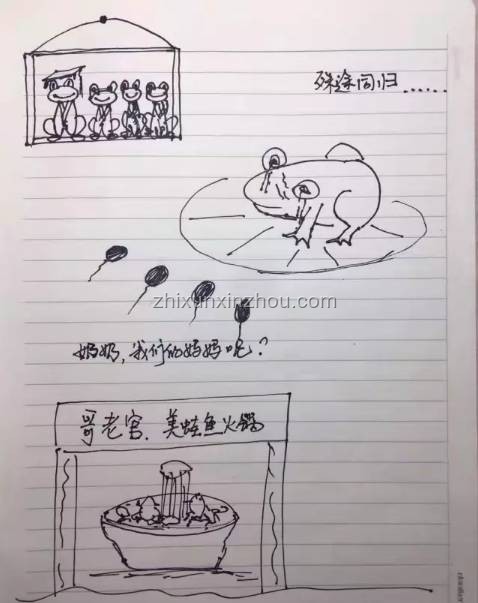 殊途同归......
zhixunxinzhou.com
奶奶,我们的妈妈呢?
哥老官.美蛙鱼火锅